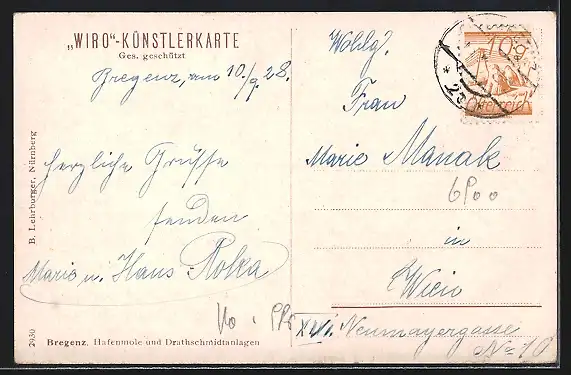 „WIRO“-KÜNSTLERKARTE
Ges. geschützt
Bregenz, am 10./9. 28.
Herzliche Grüsse
senden
Marie u. Hans Rolka
B. Lehrburger, Nürnberg
2930
Bregenz, Hafenmole und Drathschmidtanlagen
10g
Österreich
Wohlg.
Frau
Marie Manak
in
Wien
XVI. Neumayergasse
No 10